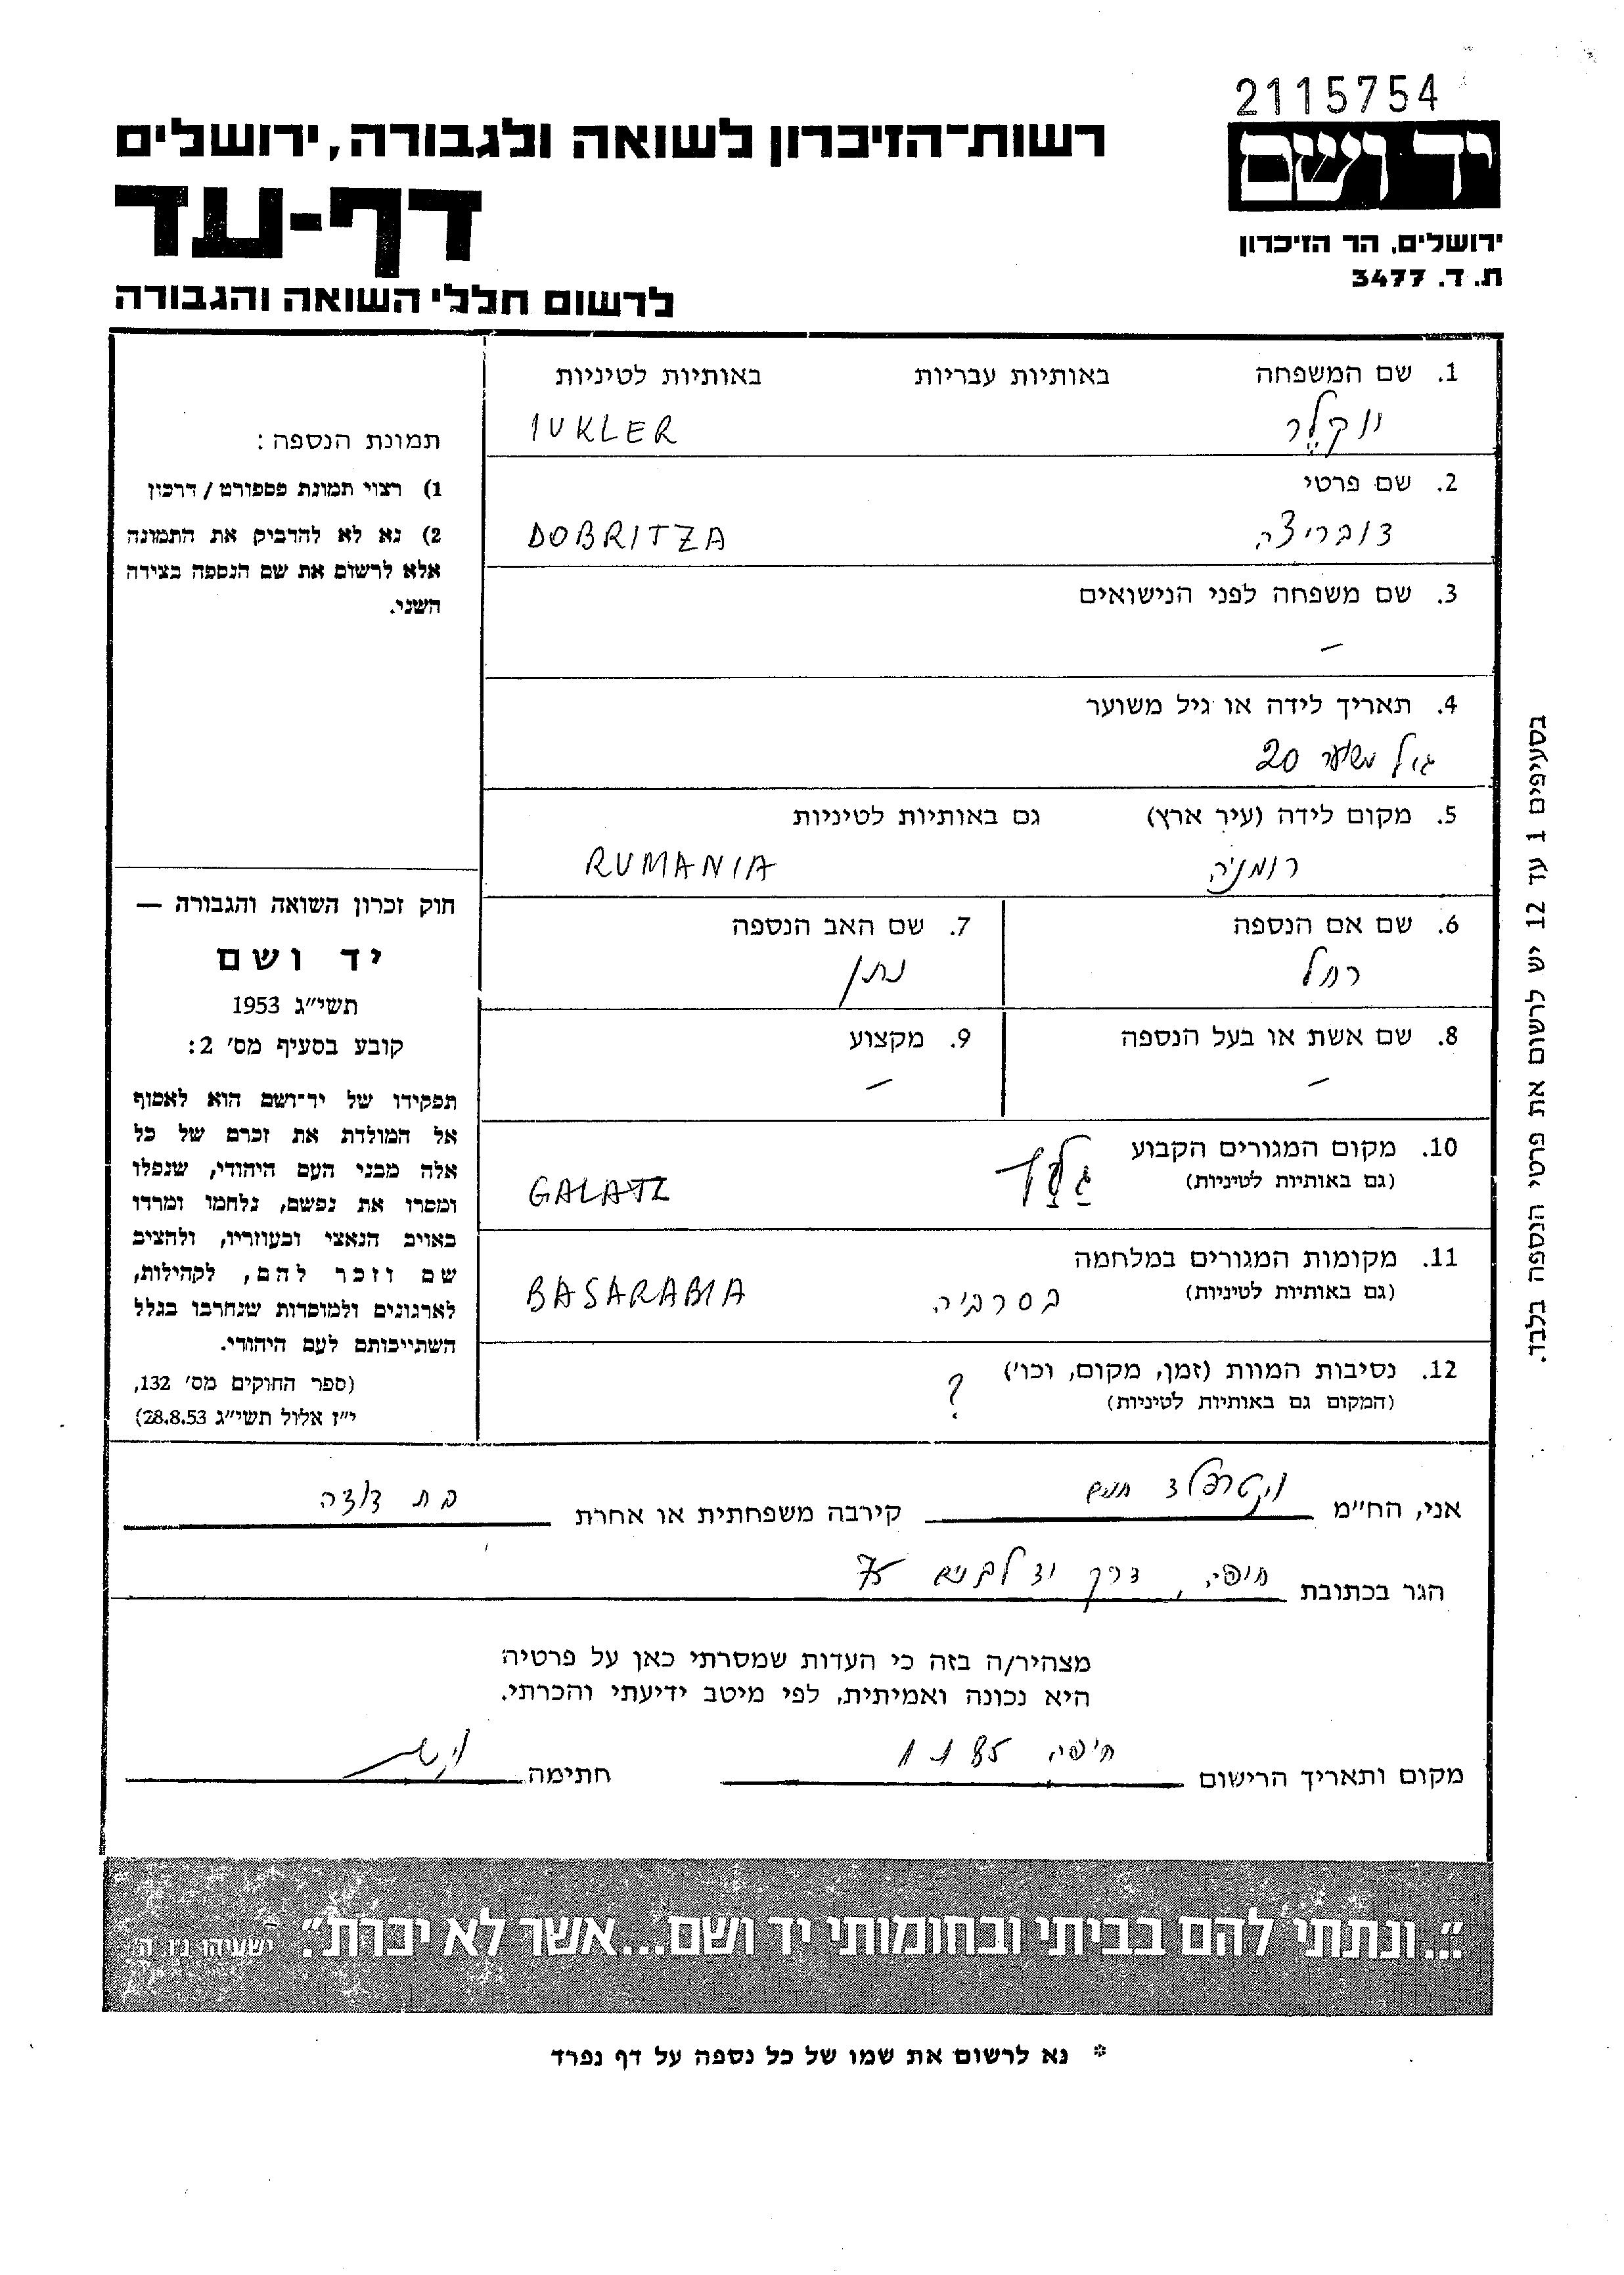 2115754
יד ושם
ירושלים, הר הזיכרון
ת. ד. 3477
רשות־הזיכרון לשואה ולגבורה, ירושלים
דף-עד
לרשום חללי השואה והגבורה
1. שם המשפחה באותיות עבריות באותיות לטיניות
יוקלר IUKLER
2. שם פרטי
דובריצה DOBRITZA
3. שם משפחה לפני הנישואים
–
4. תאריך לידה או גיל משוער
גיל משוער 20
5. מקום לידה (עיר ארץ) גם באותיות לטיניות
רומניה RUMANIA
6. שם אם הנספה 7. שם האב הנספה
רחל נתן
8. שם אשת או בעל הנספה 9. מקצוע
– –
10. מקום המגורים הקבוע
(גם באותיות לטיניות)
גלץ GALATZ
11. מקומות המגורים במלחמה
(גם באותיות לטיניות)
בסרביה BASARABIA
12. נסיבות המוות (זמן, מקום, וכו')
(המקום גם באותיות לטיניות)
?
תמונת הנספה:
1) רצוי תמונת פספורט / דרכון
2) נא לא להדביק את התמונה
אלא לרשום את שם הנספה בצידה
השני.
חוק זכרון השואה והגבורה —
יד ושם
תשי״ג 1953
קובע בסעיף מס' 2:
תפקידו של יד־ושם הוא לאסוף
אל המולדת את זכרם של כל
אלה מבני העם היהודי, שנפלו
ומסרו את נפשם, נלחמו ומרדו
באויב הנאצי ובעוזריו, ולהציב
שם וזכר להם, לקהילות,
לארגונים ולמוסדות שנחרבו בגלל
השתייכותם לעם היהודי.
(ספר החוקים מס' 132,
י״ז אלול תשי״ג 28.8.53)
בסעיפים 1 עד 12 יש לרשום את פרטי הנספה בלבד.
אני, הח״מ קירבה משפחתית או אחרת בת דודה
הגר בכתובת חיפה, דרך יד לבנים 75
מצהיר/ה בזה כי העדות שמסרתי כאן על פרטיה
היא נכונה ואמיתית, לפי מיטב ידיעתי והכרתי.
מקום ותאריך הרישום חיפה חתימה
״...ונתתי להם בביתי ובחומותי יד ושם...אשר לא יכרת״. ישעיהו נ״ו, ה'
* נא לרשום את שמו של כל נספה על דף נפרד